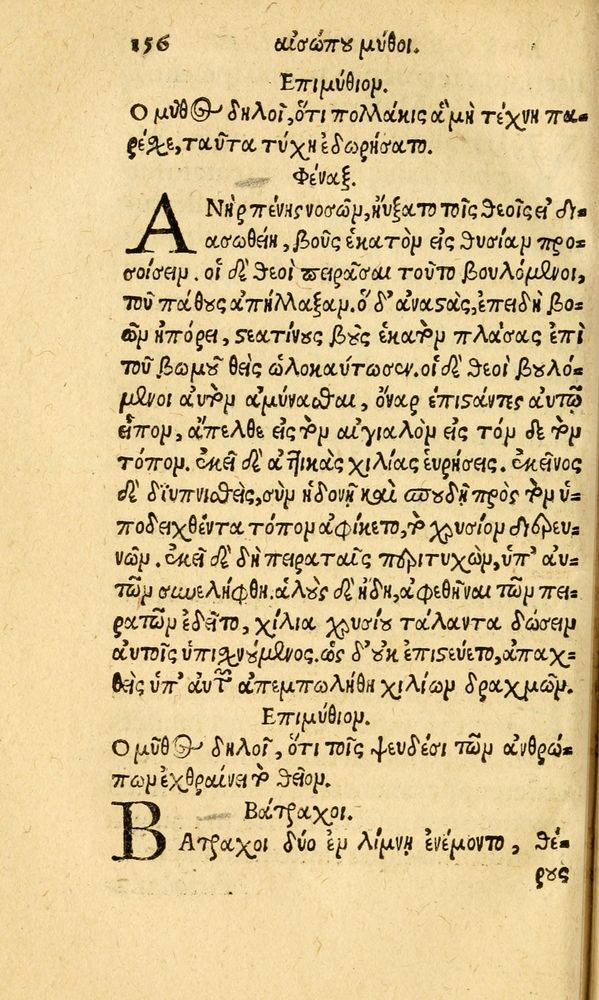 156 αἰσώπου μύθοι.
Επιμύθιον.
Ο μῦθος δηλοῖ, ὅτι πολλάκις ἃ μὴ τέχνη πα-
ρέχε, ταῦτα τύχη ἐδωρήσατο.
Φέναξ.
ΑΝὴρ πένης νοσῶν, ηὔξατο τοῖς θεοῖς εἰ δι-
ασωθείη, βοῦς ἑκατὸν εἰς θυσίαν προ-
σοίσειν. οἱ δὲ θεοὶ πειρᾶσαι τοῦτο βουλόμενοι,
τοῦ πάθους ἀπήλλαξαν. ὁ δ' ἀναστὰς, ἐπειδὴ βο-
ῶν ἠπόρει, στεατίνους βοῦς ἑκατὸν πλάσας ἐπὶ
τοῦ βωμοῦ θεὶς ὡλοκαύτωσεν. οἱ δὲ θεοὶ βουλό-
μενοι αὐτὸν ἀμύνασθαι, ὄναρ ἐπιστάντες αὐτῷ
εἶπον, ἄπελθε εἰς τὸν αἰγιαλὸν εἰς τόν δε τὸν
τόπον. ἐκεῖ δὲ ἀττικὰς χιλίας εὑρήσεις. ἐκεῖνος
δὲ διϋπνισθεὶς, σὺν ἡδονῇ καὶ σπουδῇ πρὸς τὸν ὑ-
ποδειχθέντα τόπον ἀφίκετο, τὸ χρυσίον διερευ-
νῶν. ἐκεῖ δὲ δὴ πειραταῖς περιτυχὼν, ὑπ' αὐ-
τῶν συνελήφθη. ἁλοὺς δὲ ἤδη, ἀφεθῆναι τῶν πει-
ρατῶν ἐδεῖτο, χίλια χρυσίου τάλαντα δώσειν
αὐτοῖς ὑπισχνούμενος. ὡς δ' οὐκ ἐπιστεύετο, ἀπαχ-
θεὶς ὑπ' αὐτῶν ἀπεμπολήθη χιλίων δραχμῶν.
Επιμύθιον.
Ο μῦθος δηλοῖ, ὅτι τοῖς ψευδέσι τῶν ἀνθρώ-
πων ἐχθραίνει τὸ θεῖον.
Βάτραχοι.
ΒΑτραχοι δύο ἐν λίμνῃ ἐνέμοντο, θέ-
ρους